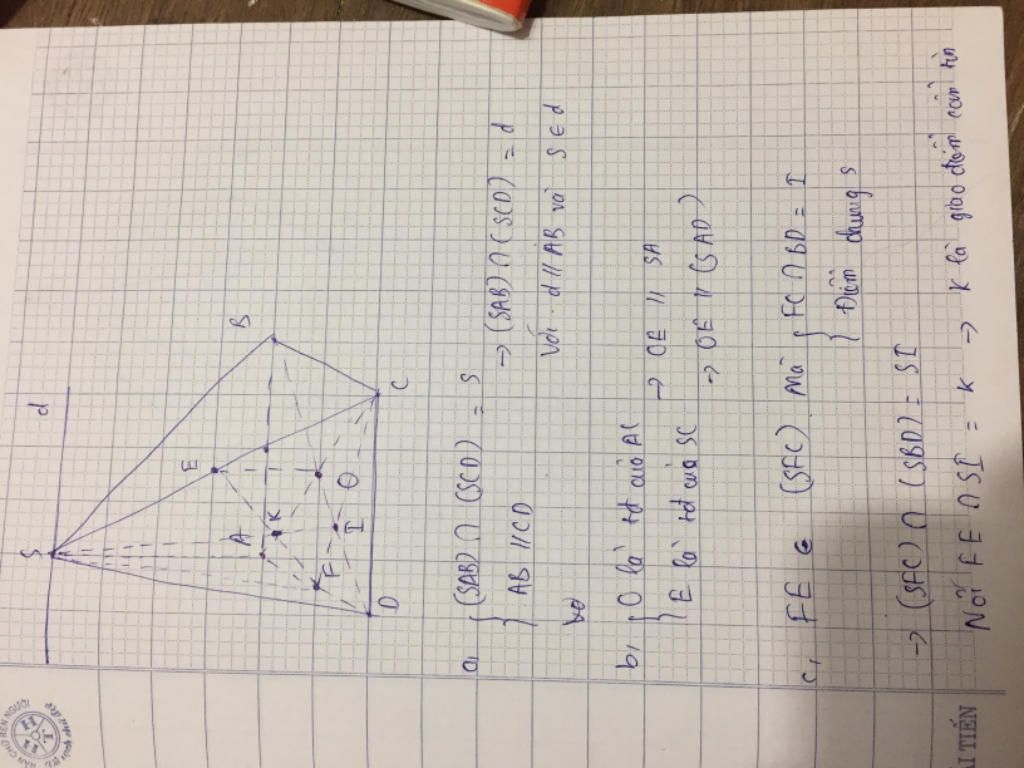 d
S
E
B
A
K
F
I
O
D
C
a, { (SAB) ∩ (SCD) = S
AB // CD
→ (SAB) ∩ (SCD) = d
Với d // AB và S ∈ d
b, { O là tđ của AC
E là tđ của SC
→ OE // SA
→ OE // (SAD)
c, FE ⊂ (SFC) mà { FC ∩ BD = I
Điểm chung S
→ (SFC) ∩ (SBD) = SI
Nối FE ∩ SI = K → K là giao điểm cần tìm
ẢI TIẾN